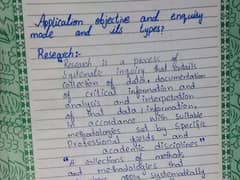 Application objective and enquiry
mode and its types?
Research:-
"Research is a process of
systematic inquiry that entails
collection of data, documentation
of critical information and
analysis and interpretation
of that data, information,
in accordance with suitable
methodologies set by specific
Professional fields and
academic disciplines"
"A collections of methods
and methodologies that
apply systematically